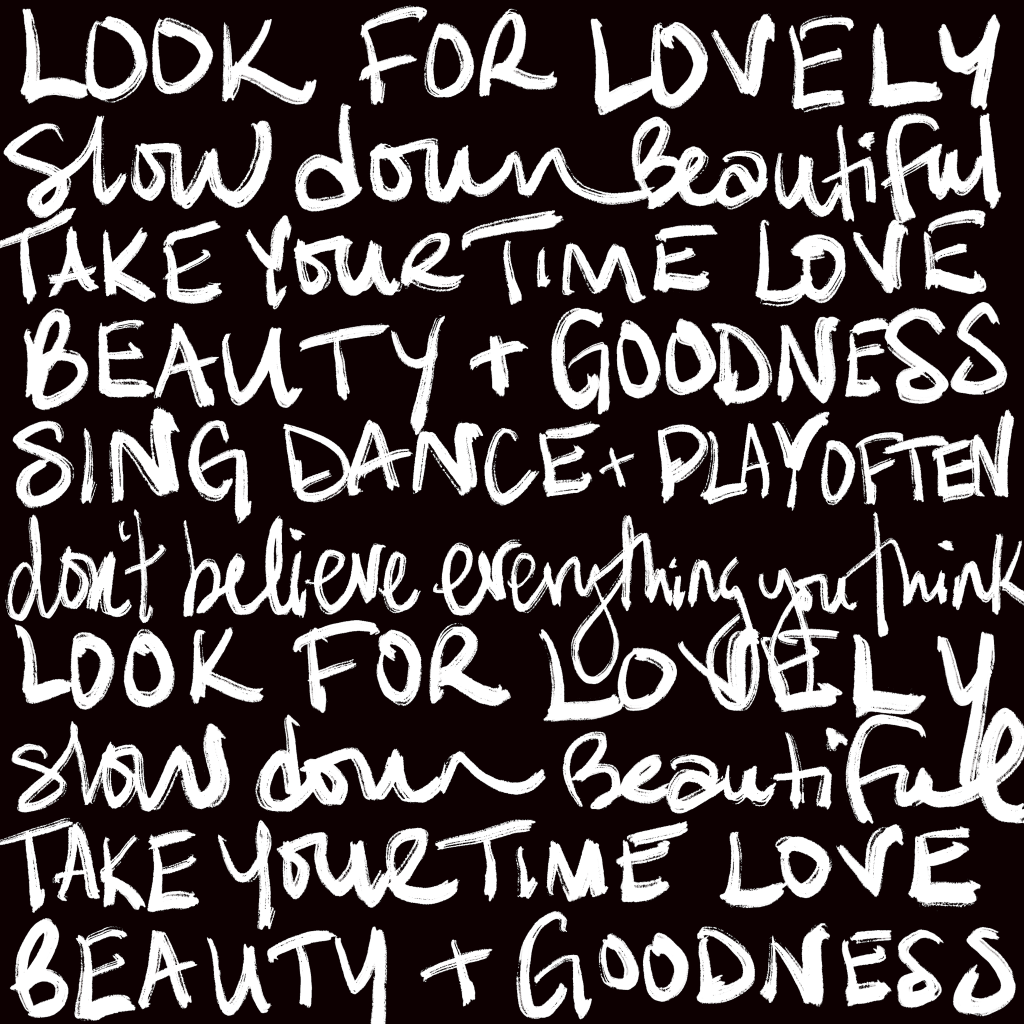 LOOK FOR LOVELY
Slow down Beautiful
TAKE YOUR TIME LOVE
BEAUTY + GOODNESS
SING DANCE + PLAY OFTEN
don't believe everything you think
LOOK FOR LOVELY
Slow down Beautiful
TAKE YOUR TIME LOVE
BEAUTY + GOODNESS